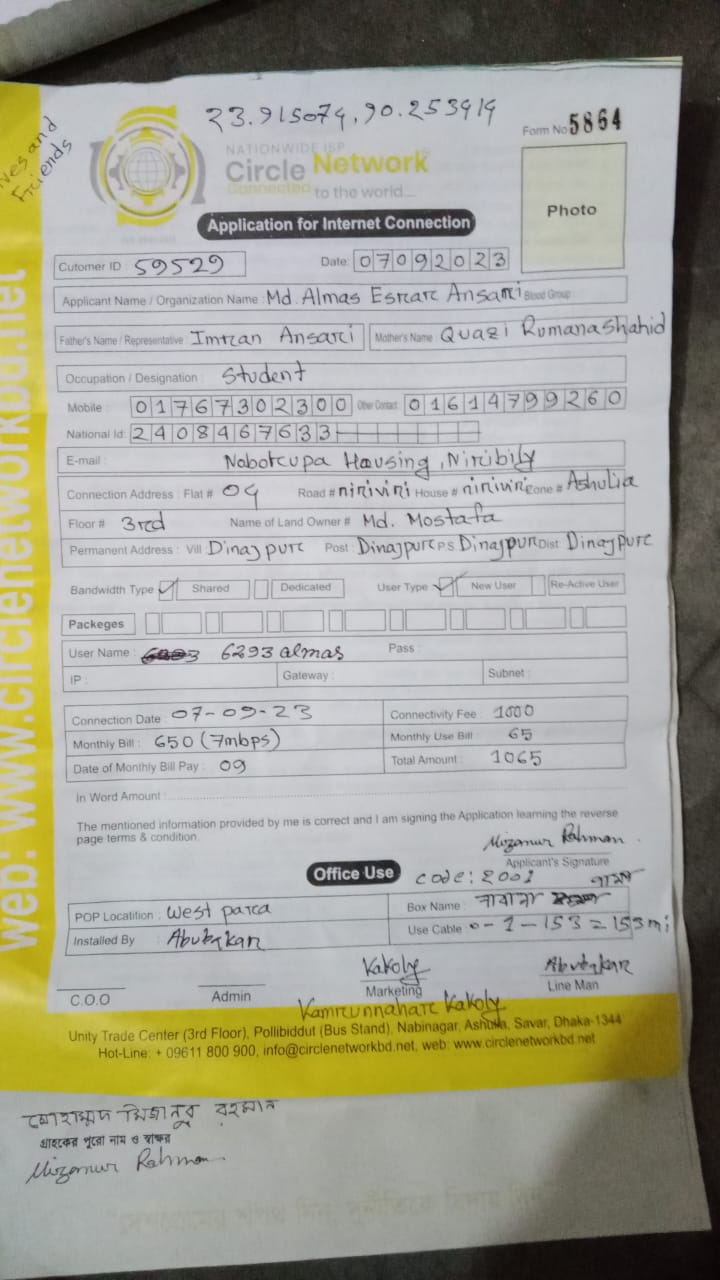 ves and
Friends
23.915074,90.253414
Form No 5864
NATIONWIDE ISP
Circle Network
Connected to the world...
Photo
Application for Internet Connection
Cutomer ID : 59529 Date: 07092023
Applicant Name / Organization Name : Md. Almas Esrar Ansari Blood Group
Father's Name / Representative : Imran Ansari Mother's Name : Quazi Rumana Shahid
Occupation / Designation : Student
Mobile : 01767302300 Other Contact: 01614799260
National Id: 2408467633
E-mail : Naborupa Housing, Niribily
Connection Address : Flat # 04 Road # niriviri House # niriviri Zone # Ashulia
Floor # 3rd Name of Land Owner # Md. Mostafa
Permanent Address : Vill Dinajpur Post : Dinajpur P.S Dinajpur Dist: Dinajpur
Bandwidth Type Shared Dedicated User Type New User Re-Active User
Packeges
User Name : 6293 almas Pass :
IP : Gateway : Subnet :
Connection Date : 07-09-23 Connectivity Fee : 1000
Monthly Bill : 650 (7mbps) Monthly Use Bill : 65
Date of Monthly Bill Pay : 09 Total Amount : 1065
In Word Amount :
The mentioned information provided by me is correct and I am signing the Application learning the reverse
page terms & condition.
Mizanur Rahman
Applicant's Signature
Office Use code: 2001
POP Locatition : West para Box Name :
Installed By : Abubakar Use Cable 0-1-153 = 153 mi
Kakoly Abubakar
C.O.O Admin Marketing Line Man
Kamrunnahar Kakoly
Unity Trade Center (3rd Floor), Pollibiddut (Bus Stand), Nabinagar, Ashulia, Savar, Dhaka-1344
Hot-Line: + 09611 800 900, info@circlenetworkbd.net, web: www.circlenetworkbd.net
web: www.circlenetworkbd.net
মোহাম্মদ মিজানুর রহমান
গ্রাহকের পুরো নাম ও স্বাক্ষর
Mizanur Rahman